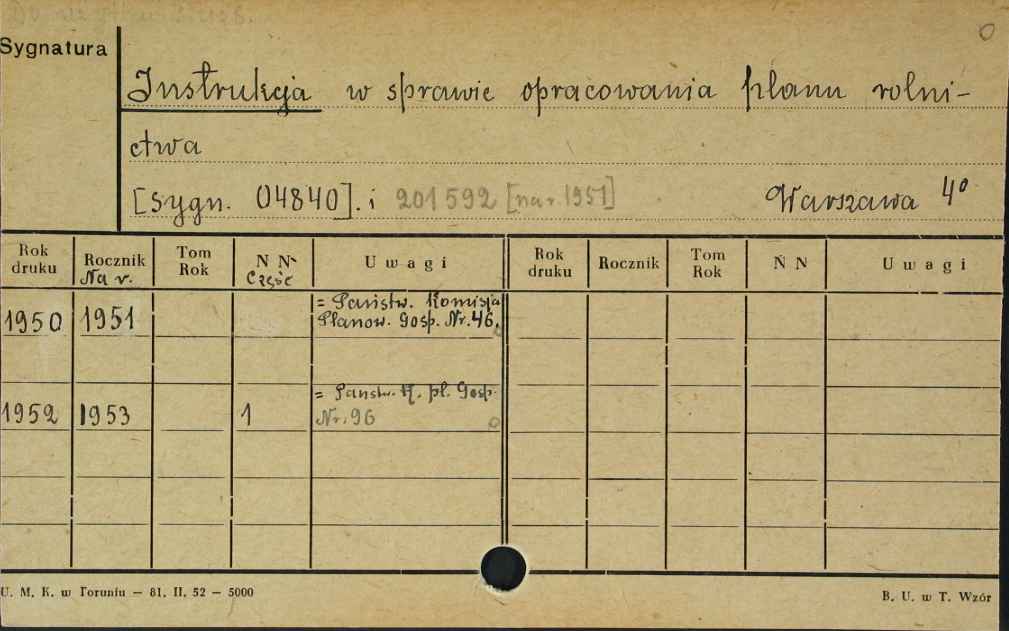 Sygnatura
Instrukcja w sprawie opracowania planu rolni-
ctwa
[Sygn. 04840]. i 201592 [na r. 1951] Warszawa 4°
Rok druku Rocznik Na r. Tom Rok N N Część Uwagi Rok druku Rocznik Tom Rok N N Uwagi
1950 1951 = Państw. Komisja
Planow. Gosp. Nr. 46.
1952 1953 1 = Państw. K. pl. Gosp.
Nr. 96
U. M. K. w Toruniu — 81. II. 52 — 5000 B. U. w T. Wzór